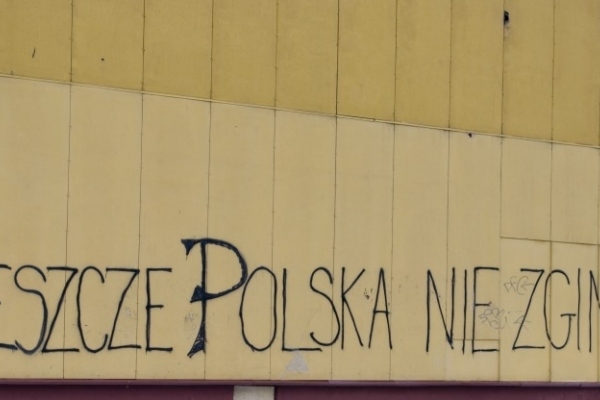 ESZCZE POLSKA NIE ZGIN